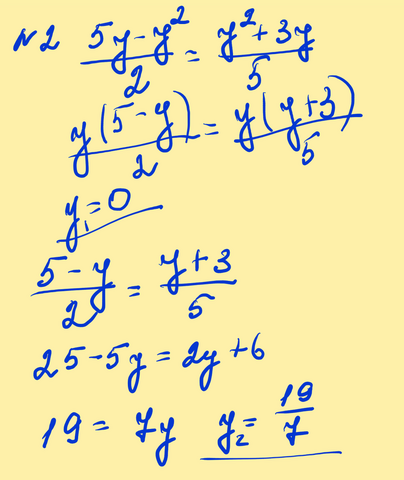 N2 (5y-y²)/2 = (y²+3y)/5
y(5-y)/2 = y(y+3)/5
y₁=0
(5-y)/2 = (y+3)/5
25-5y=2y+6
19=7y y₂=19/7